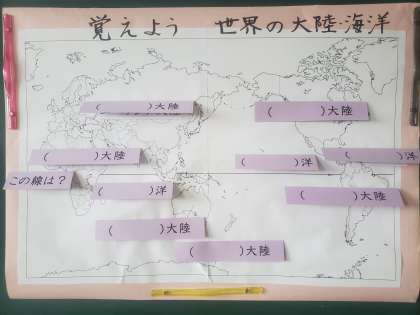 覚えよう 世界の大陸・海洋
(　　　)大陸
(　　　)大陸
(　　　)大陸
(　　　)洋
(　　　)洋
この線は?
(　　　)洋
(　　　)大陸
(　　　)大陸
(　　　)大陸